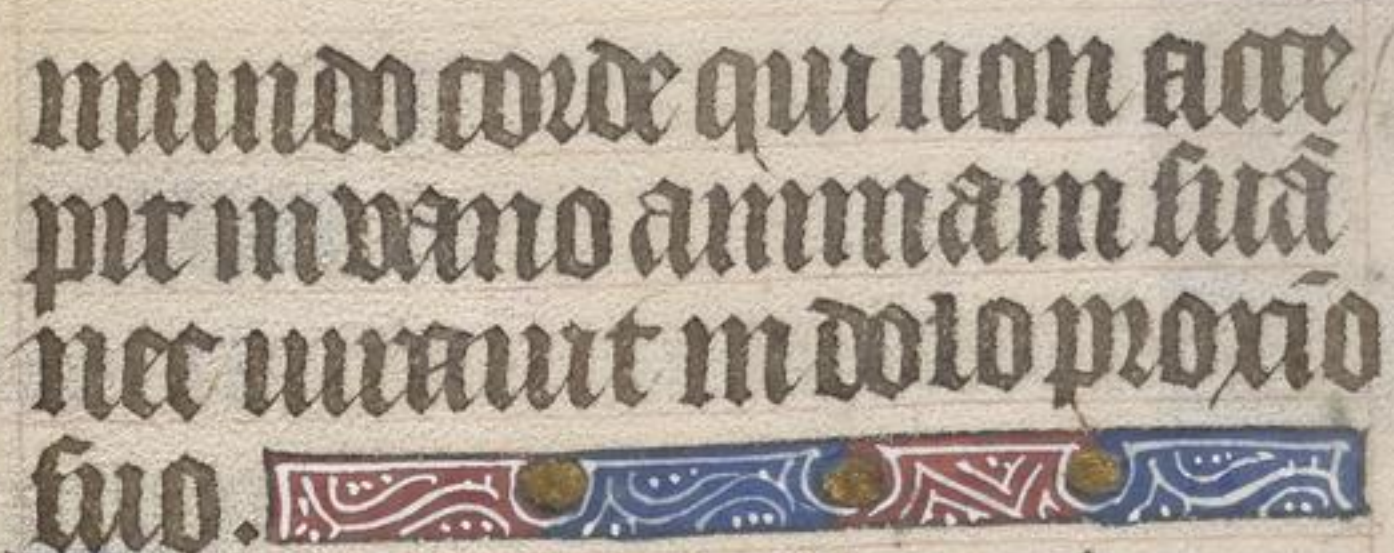 mundo corde qui non acce
pit in vano animam suā
nec iurauit in dolo proxīo
suo.